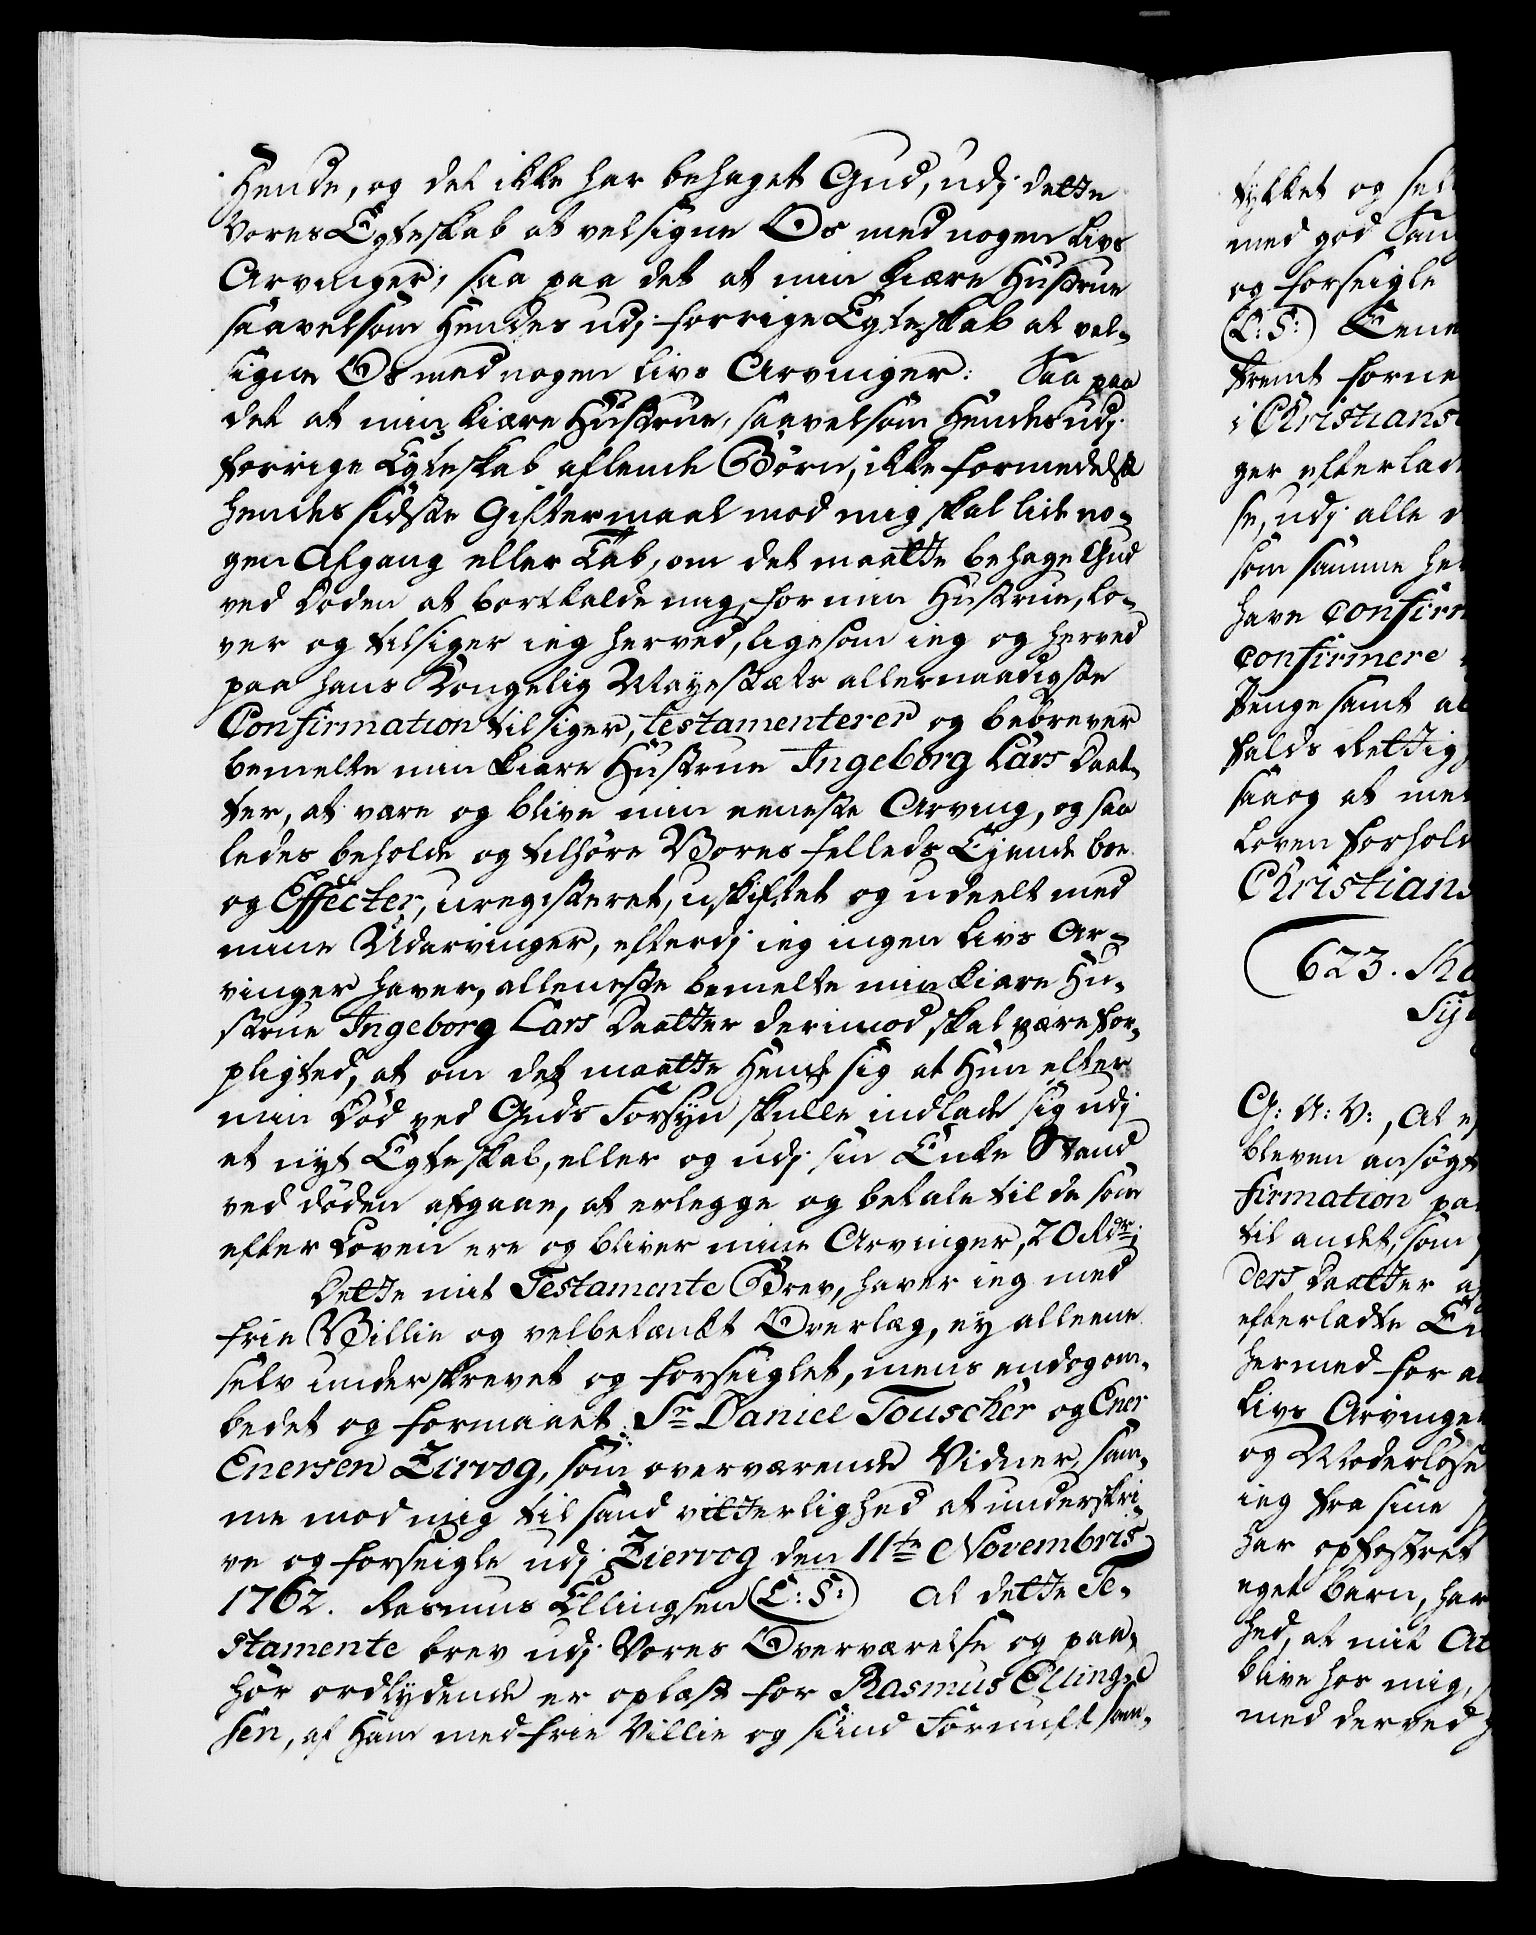 Hende, og det ikke har behaget Gud, udj dette
Vores Egteskab at velsigne Os med nogen Livs
Arvinger, saa paa det at min kiære Hustrue
saavelsom Hendes udj forrige Egteskab at vel-
signe Os med nogen Livs Arvinger: Saa paa
det at min kiære Hustrue, saavelsom Hendes udj
forrige Egteskab aflende Børn, ikke formedelst
hendes sidste Giftermaal med mig skal lide no-
gen Afgang eller Tab, om det maatte behage Gud
ved Døden at bortkalde mig, for min Hustrue, lo-
ver og tilsiger ieg herved, ligesom ieg og herved
paa hans Kongelig Mayestæts allernaadigste
Confirmation tilsiger, testamenterer og bebrever
bemelte min kiære Hustrue Ingeborg Lars Daat-
ter, at være og blive min eeneste Arving, og saa
ledes beholde og tilhøre Vores felleds Ejende boe
og Effecter, uregisteret, uskiftet og udeelt med
mine Udarvinger, efterdj ieg ingen Livs Ar-
vinger haver, alleneste bemelte min kiære Hu-
strue Ingeborg Lars Daatter derimod skal være for-
pligted, at om det maatte Hende sig at Hun efter
min Død ved Guds Forsyn skulle indlade sig udj
et nyt Egteskab, eller og udj sin Enke Stand
ved døden afgaae, at erlegge og betale til de som
efter Loven ere og bliver mine Arvinger, 20 Rdr;
Dette mit Testamente Brev, haver ieg med
frie Villie og velbetænkt Overlæg, ey alleene
selv underskrevet og forseiglet, mens endog om-
bedet og formaaet Sr Daniel Touscher og Ener
Enersen Zirvog, som overværende Vidner, sam-
me med mig til sand vitterlighed at underskri-
ve og forseigle udj Ziervog den 11te Novembris
1762. Rasmus Ellingsen (L: S:) At dette Te-
stamente brev udj Vores Overværelse og paa-
hør ordlydende er oplæst for Rasmus Elling-
sen, af Ham med frie Villie og sund Fornuft sam-
tykket og sel
med god San
og forseigle
(L: S:) Ene
fremt forne
i Christians
ger efterlad
se, udj alle
som samme he
have confirm
confirmere
Penge samt al
falds Rettig
saa og at me
Loven forhold
Christians
623.
G: A: V:, At e
bleven ansøgt
firmation pa
til andet, som
ders Daatter
efterladte En
hermed for a
Livs Arvinger
og Moderløse
ieg fra sine
har opfostret
eget barn, har
hed, at mit
blive hos mig,
med derved